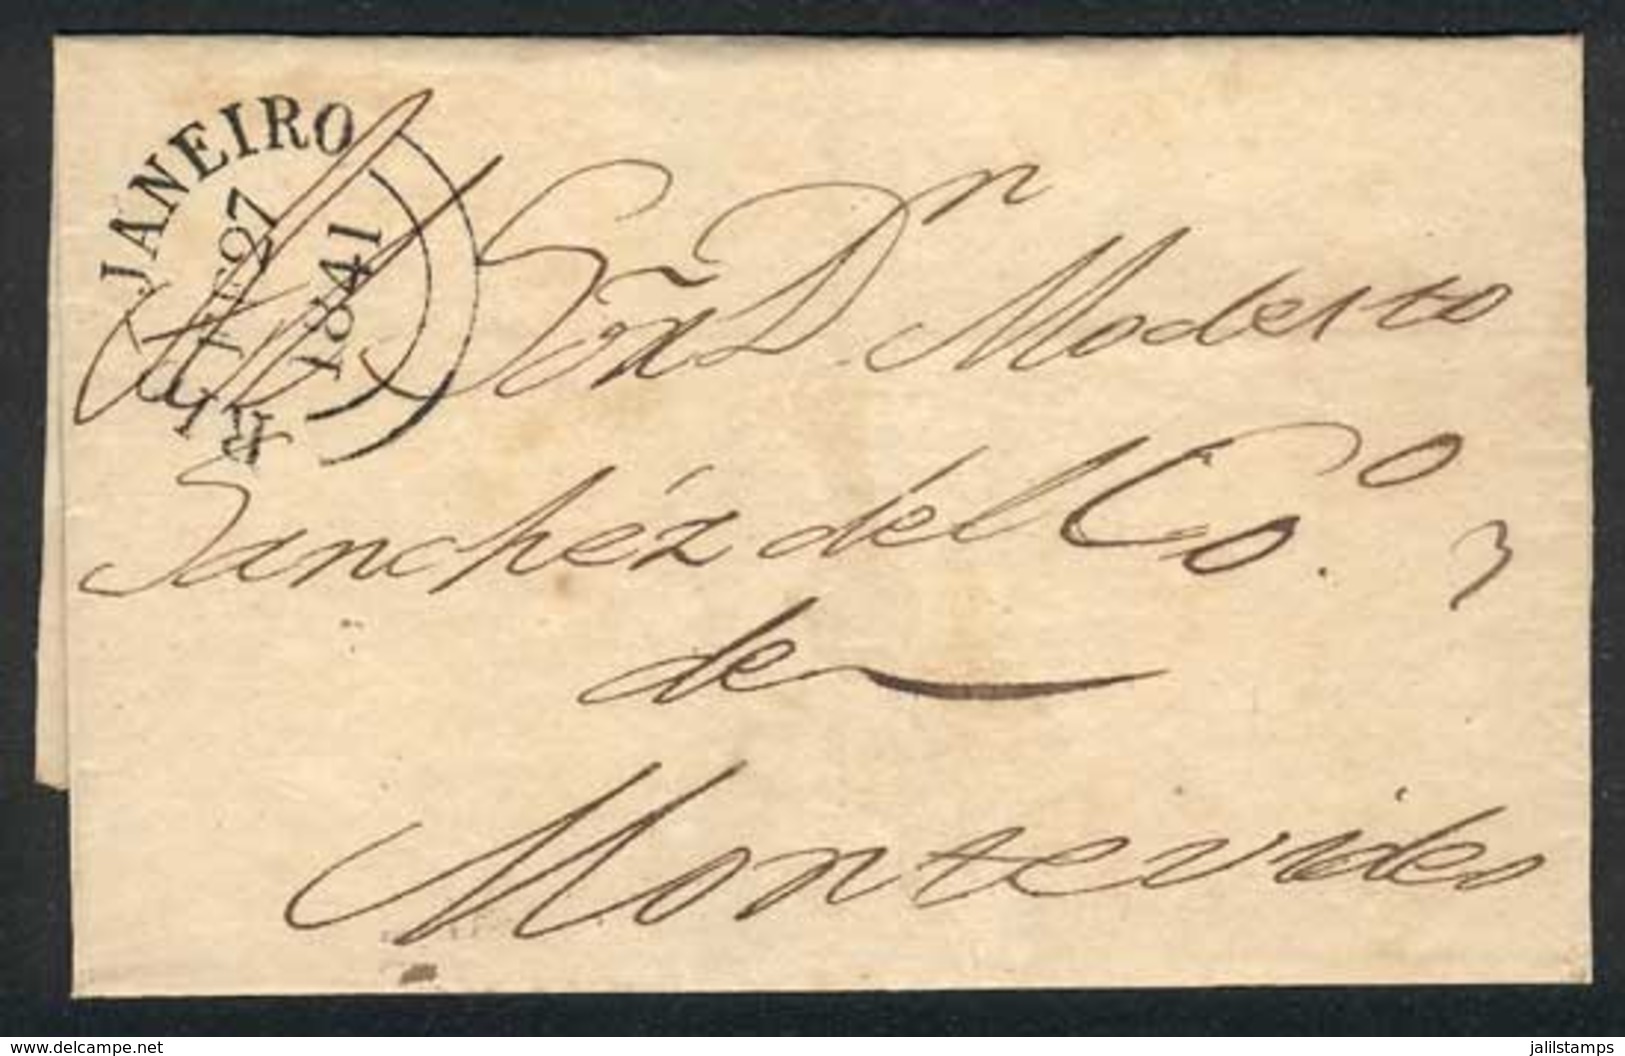 R. JANEIRO
27
1841
Al Sör Dn. Modesto
Sanchéz del Co.o
de
Montevideo
www.delcampe.net
jalilstamps